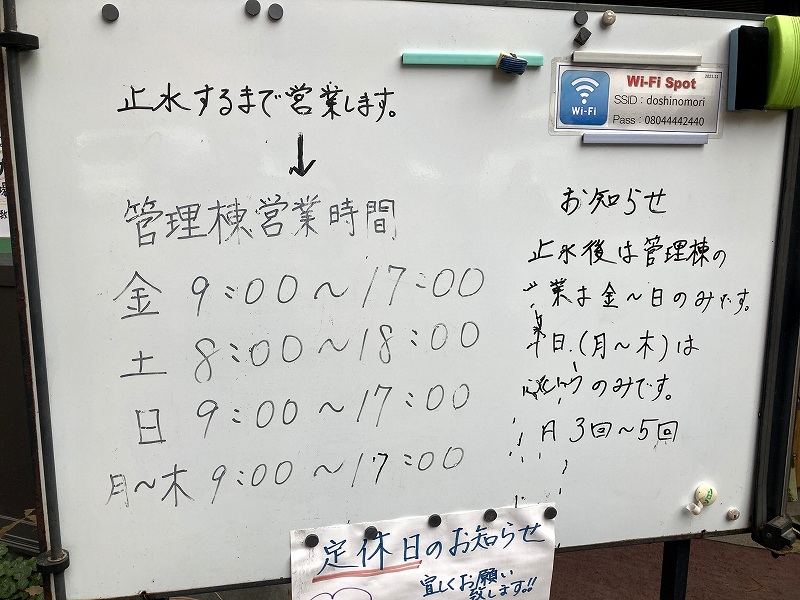 止水するまで営業します。
↓
管理棟営業時間
金 9:00～17:00
土 8:00～18:00
日 9:00～17:00
月～木 9:00～17:00
Wi-Fi
Wi-Fi Spot
SSID：doshinomori
Pass：08044442440
お知らせ
止水後は管理棟の
業は金～日のみです。
日.(月～木)は
のみです。
月 3回～5回
定休日のお知らせ
宜しくお願い
致します!!